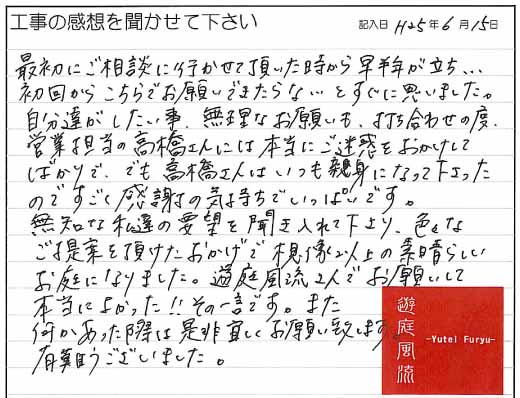 工事の感想を聞かせて下さい
記入日 H25年6月15日
最初にご相談に行かせて頂いた時から早半年が立ち…
初回からこちらでお願いできたらな… とすぐに思いました。
自分達がしたい事、無理なお願いも、打ち合わせの度、
営業担当の高橋さんには本当にご迷惑をおかけして
ばかりで、でも高橋さんはいつも親身になって下さった
のですごく感謝の気持ちでいっぱいです。
無知な私達の要望を聞き入れて下さり、色々な
ご提案を頂けたおかげで想像以上の素晴らしい
お庭になりました。遊庭風流さんでお願いして
本当によかった!!その一言です。また
何かあった際は是非宜しくお願い致します。
有難うございました。
遊庭風流
-Yutei Furyu-